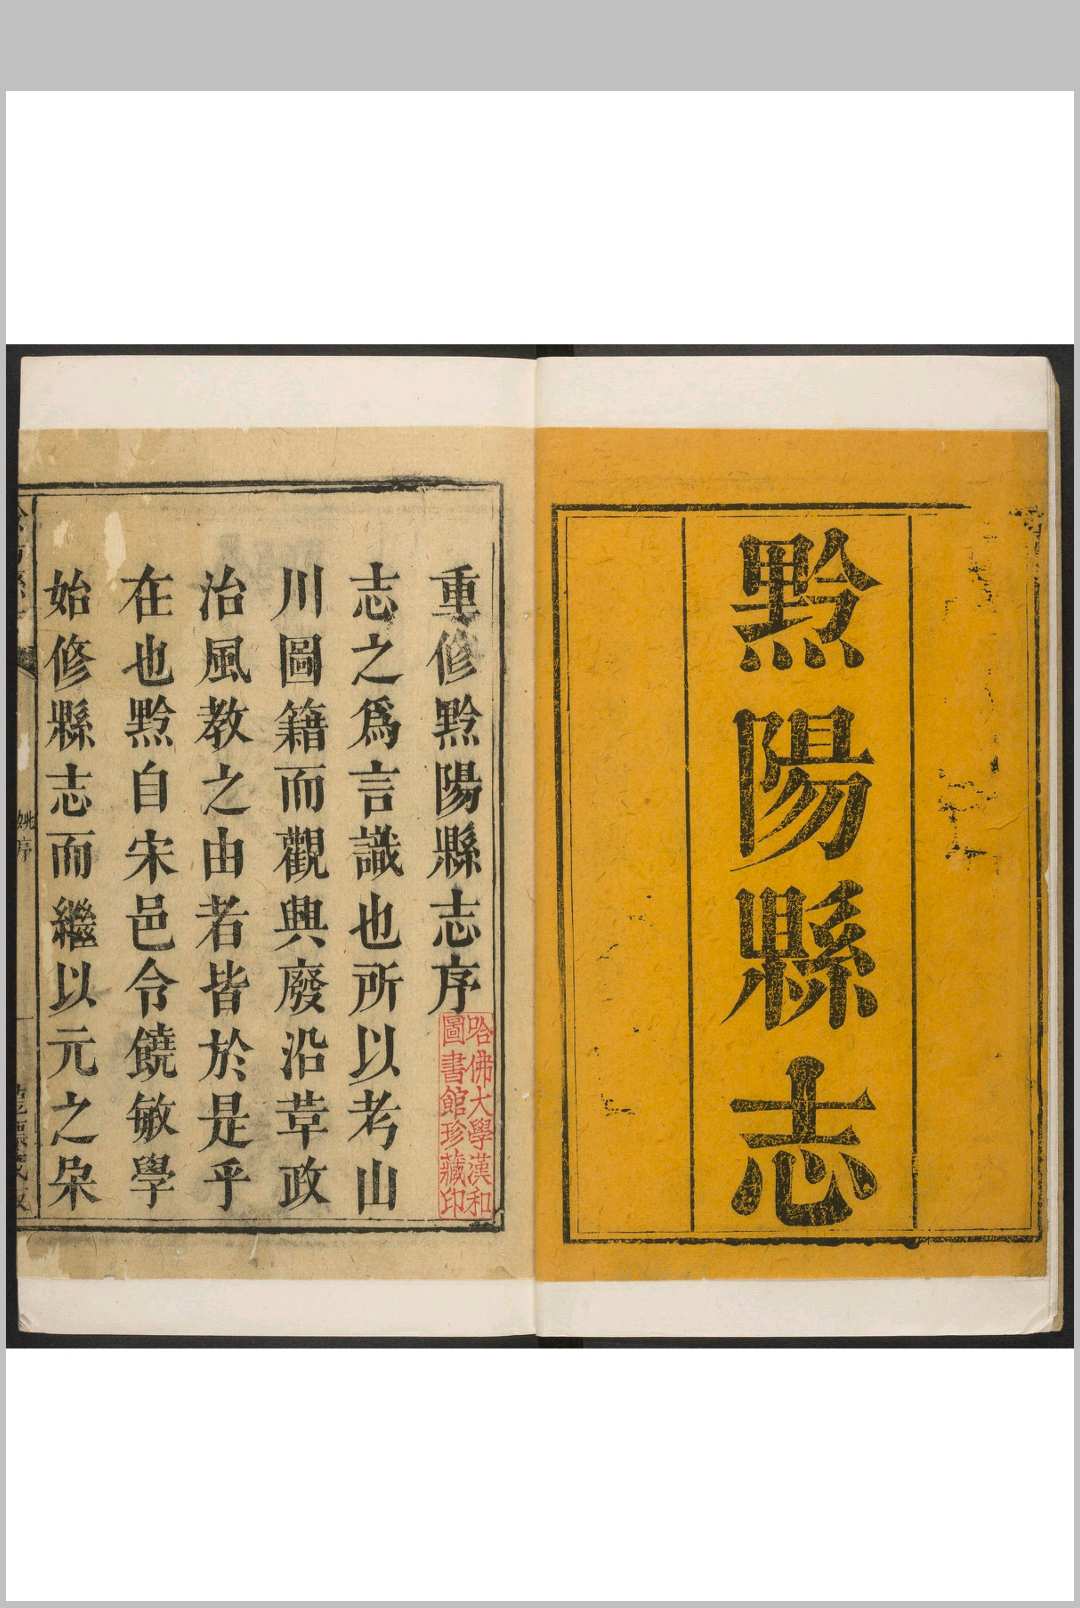 黔陽縣志
重修黔陽縣志序
志之爲言識也所以考山
川圖籍而觀興廢沿革政
治風教之由者皆於是乎
在也黔自宋邑令饒敏學
始修縣志而繼以元之朶
哈佛大學漢和
圖書館珍藏印